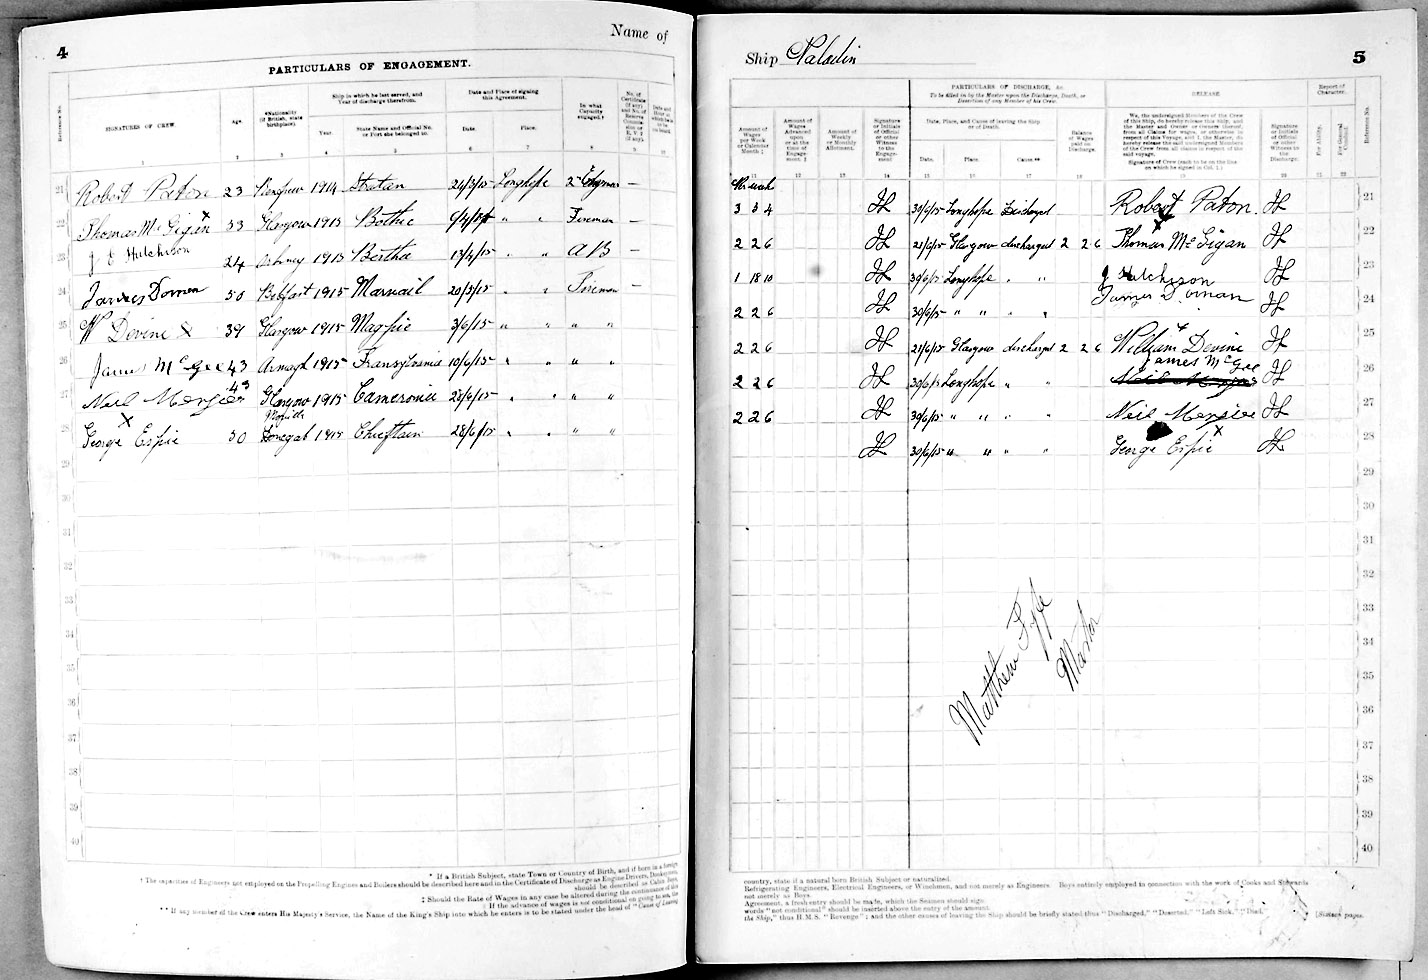 4
Name of
PARTICULARS OF ENGAGEMENT.
Reference No.
SIGNATURES OF CREW.
Age.
*Nationality (if British, state birthplace).
Ship in which he last served, and Year of discharge therefrom.
Year.
State Name and Official No. or Port she belonged to.
Date and Place of signing this Agreement.
Date.
Place.
In what Capacity engaged.†
1 2 3 4 5 6 7 8 9 10
21 Robert Paton 23 Renfrew 1914 24/3/15 Longhope 2nd —
22 Thomas Mc Gigan x 33 Glasgow 1915 Bothie 9/4/15 " " Fireman —
23 J Hutchison 24 1915 Bertha 17/4/15 " " AB —
24 James Dornan 50 Belfast 1915 20/5/15 " " Fireman —
25 W Devine x 39 Glasgow 1915 Magpie 3/6/15 " " " "
26 James McGee 43 Armagh 1915 Transylvania 10/6/15 " " " "
27 Neil Menzies 49 Glasgow 1915 Cameronia 28/6/15 " " " "
28 George Espie x 50 Donegal 1915 Chieftain 28/6/15 " " " "
29
30
31
32
33
34
35
36
37
38
39
40
* If a British Subject, state Town or Country of Birth, and if born in a foreign
† The capacities of Engineers not employed on the Propelling Engines and Boilers should be described here and in the Certificate of Discharge as Engine Drivers, Donkeymen,
‡ Should the Rate of Wages in any case be altered during the continuance of this
|| If the advance of wages is not conditional on going to sea, the
** If any member of the Crew enters His Majesty's Service, the Name of the King's Ship into which he enters is to be stated under the head of "Cause of Leaving
Ship Paladin
5
PARTICULARS OF DISCHARGE, &c.
To be filled in by the Master upon the Discharge, Death, or Desertion of any Member of his Crew.
RELEASE
Report of Character.
Amount of Wages per Week or Calendar Month ‡
Amount of Wages Advanced upon or at the time of Engagement. ‡
Amount of Weekly or Monthly Allotment.
Signature or Initials of Official or other Witness to the Engagement
Date, Place, and Cause of leaving the Ship or of Death.
Date. Place. Cause.**
Balance of Wages paid on Discharge.
We, the undersigned Members of the Crew of this Ship, do hereby release this Ship, and the Master and Owner or Owners thereof, from all Claims for wages, or otherwise in respect of this Voyage, and I, the Master, do hereby release the said undersigned Members of the Crew from all claims in respect of the said voyage.
Signature of Crew (each to be on the line on which he signed in Col. 1.)
Signature or Initials of Official or other Witness to the Discharge.
For Ability.
For General Conduct.
Reference No.
11 12 13 14 15 16 17 18 19 20 21 22
3 3 4 30/6/15 Longhope Discharged Robert Paton 21
2 2 6 21/6/15 Glasgow discharged 2 2 6 Thomas Mc Gigan x 22
1 18 10 30/6/15 Longhope " " J Hutchison 23
2 2 6 30/6/15 " " " " James Dornan 24
2 2 6 21/6/15 Glasgow discharged 2 2 6 William Devine x 25
2 2 6 30/6/15 Longhope " " James McGee 26
2 2 6 30/6/15 " " " " Neil Menzies 27
30/6/15 " " " " George Espie x 28
29
30
31
32
33
34
35
36
37
38
39
40
Matthew Fyfe
Master
country, state if a natural born British Subject or naturalized.
Refrigerating Engineers, Electrical Engineers, or Winchmen, and not merely as Engineers. Boys entirely employed in connection with the work of Cooks and Stewards
not merely as Boys.
Agreement, a fresh entry should be made, which the Seamen should sign.
words "not conditional" should be inserted above the entry of the amount.
the Ship," thus H.M.S. "Revenge"; and the other causes of leaving the Ship should be briefly stated thus "Discharged," "Deserted," "Left Sick," "Died."
[Sixteen pages.